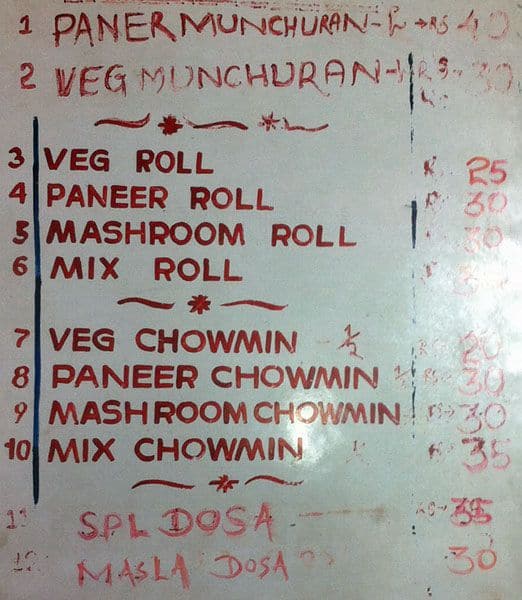 1 PANER MUNCHURAN - RS 40
2 VEG MUNCHURAN - RS 30
3 VEG ROLL 25
4 PANEER ROLL 30
5 MASHROOM ROLL 30
6 MIX ROLL
7 VEG CHOWMIN - ½ 20
8 PANEER CHOWMIN 30
9 MASHROOM CHOWMIN 30
10 MIX CHOWMIN 35
11 SPL DOSA 35
12 MASLA DOSA 30